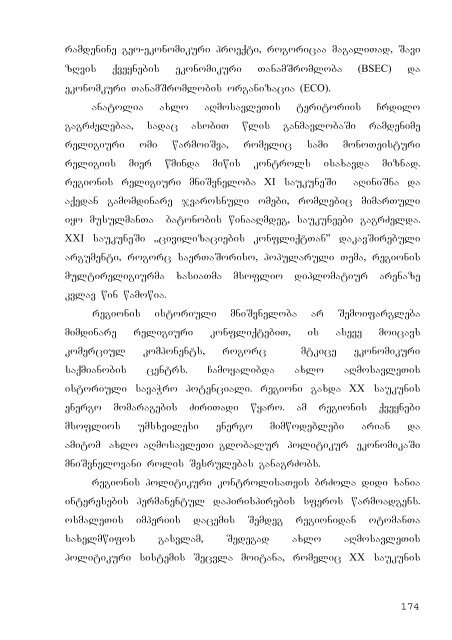 რამდენინე გეო-ეკონომიკური პროექტი, როგორიცაა მაგალითად, შავი
ზღვის ქვეყნების ეკონომიკური თანამშრომლობა (BSEC) და
ეკონომკური თანამშრომლობის ორგანიზაცია (ECO).
ანატოლია ახლო აღმოსავლეთის ტერიტორიის ჩრდილო
გაგრძელებაა, სადაც ასობით წლის განმავლობაში რამდენიმე
რელიგიური ომი წარმოიშვა, რომელიც სამი მონოთეისტური
რელიგიის მიერ წმინდა მიწის კონტროლს ისახავდა მიზნად.
რეგიონის რელიგიური მნიშვნელობა XI საუკუნეში აღინიშნა და
აქედან გამომდინარე ჯვაროსნული ომები, რომლებიც მიმართული
იყო მუსულმანთა ბატონობის წინააღმდეგ, საუკუნეები გაგრძელდა.
XXI საუკუნეში „ცივილიზაციების კონფლიქტთან” დაკავშირებული
არგუმენტი, როგორც საერთაშორისო, პოპულარული თემა, რეგიონის
მულტირელიგიურმა ხასიათმა მსოფლიო დიპლომატიურ არენაზე
კვლავ წინ წამოწია.
რეგიონის ისტორიული მნიშვნელობა არ შემოიფარგლება
მიმდინარე რელიგიური კონფლიქტებით, ის ასევე მოიცავს
კომერციულ კომპონენტს, როგორც მტკიცე ეკონომიკური
საქმიანობის ცენტრს. ჩამოყალიბდა ახლო აღმოსავლეთის
ისტორიული სავაჭრო პოტენციალი. რეგიონი გახდა XX საუკუნის
ენერგო მომარაგების ძირითადი წყარო. ამ რეგიონის ქვეყნები
მსოფლიოს უმსხვილესი ენერგო მიმწოდებლები არიან და
ამიტომ ახლო აღმოსავლეთი გლობალურ პოლიტიკურ ეკონომიკაში
მნიშვნელოვანი როლის შესრულებას განაგრძობს.
რეგიონის პოლიტიკური კონტროლისათვის ბრძოლა დიდი ხანია
ინტერესების პერმანენტულ დაპირისპირების სფეროს წარმოადგენს.
ოსმალეთის იმპერიის დაცემის შემდეგ რეგიონიდან ოტომანთა
სახელმწიფოს გასვლამ, შედეგად ახლო აღმოსავლეთის
პოლიტიკური სისტემის შეცვლა მოიტანა, რომელიც XX საუკუნის
174